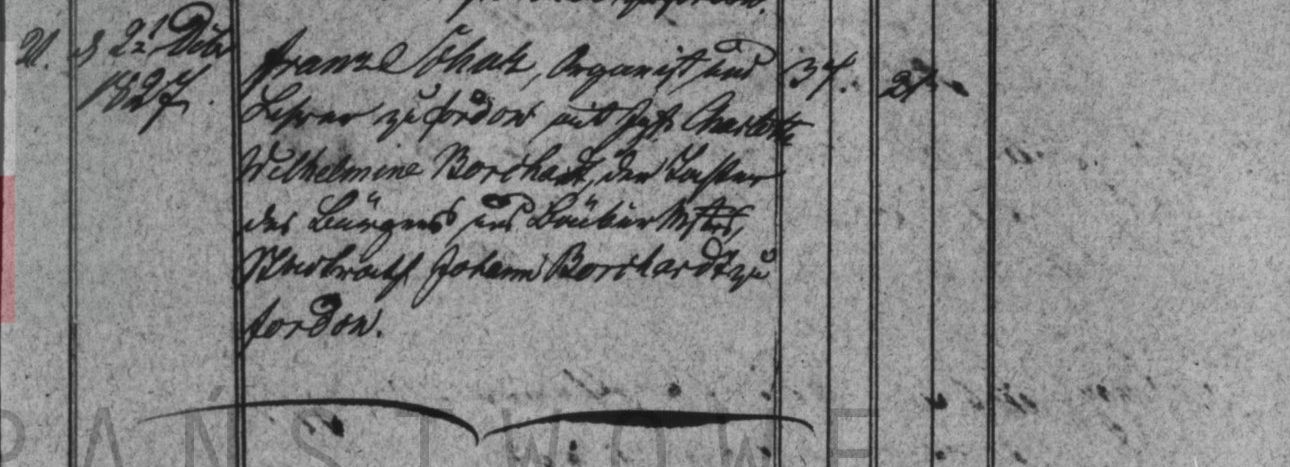 21. d 22t Debr
1827.
Franz Schatz, Organist und
37.
21.
Lehrer zu Fordon mit Jgfr. Charlotte
Wilhelmine Borchardt, der Tochter
des Bürgers und
Johann Borchardt zu
Fordon.
PAŃSTWOWE